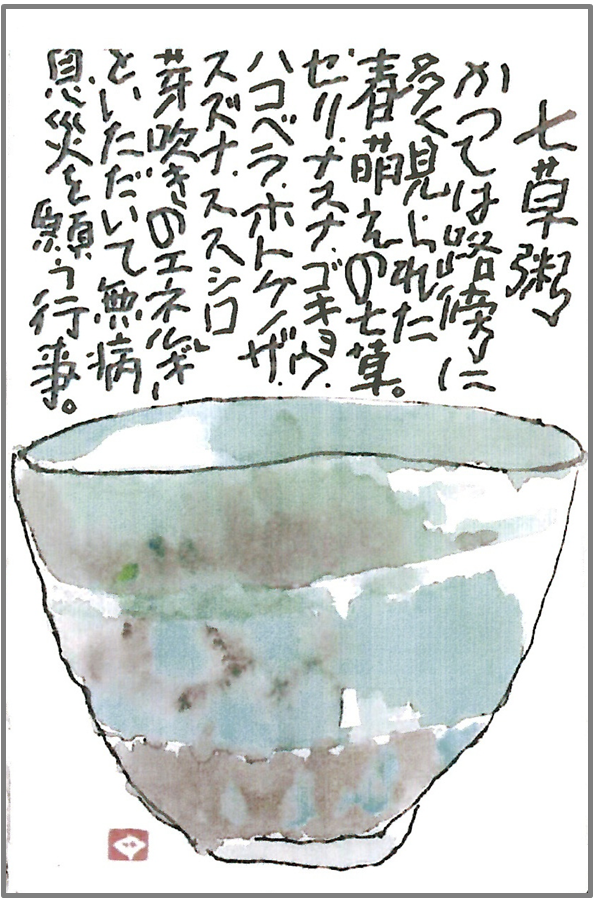 七草粥
かつては路傍に
多く見られた
春萌えの七草。
セリ・ナズナ・ゴギョウ・
ハコベラ・ホトケノザ・
スズナ・スズシロ
芽吹きのエネルギー
といただいて無病
息災を願う行事。